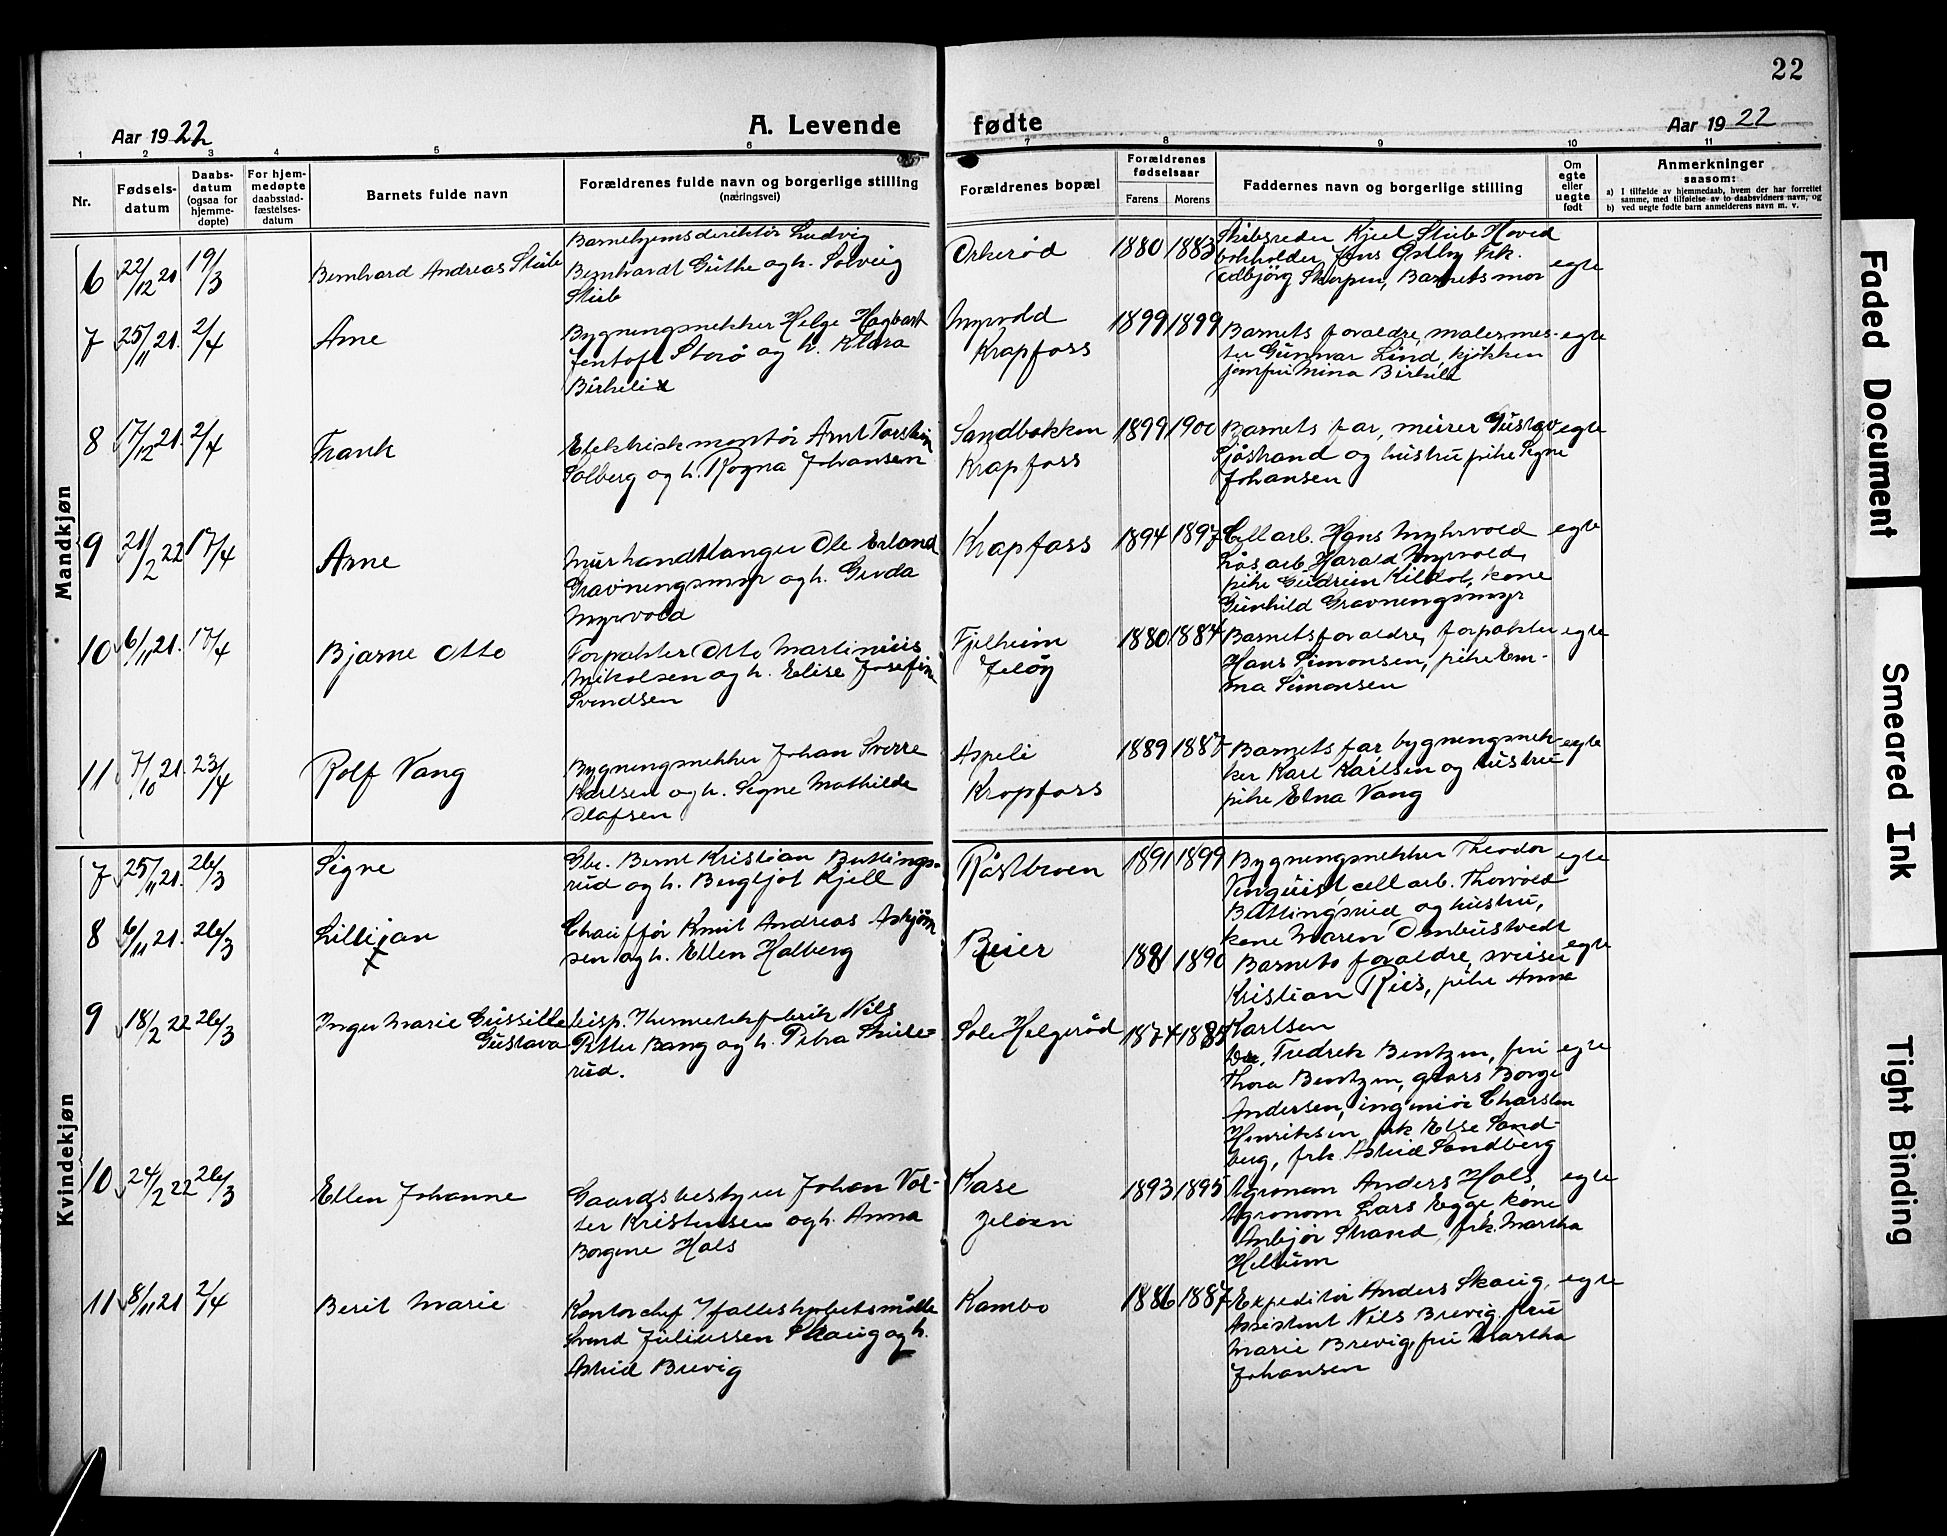 22
Aar 1922
A. Levende
fødte
Aar 1922
1 2 3 4 5 6 7 8 9 10 11
Nr.
Fødsels-
datum
Daabs-
datum
(ogsaa for
hjemme-
døpte)
For hjem-
medøpte
daabsstad-
fæstelses-
datum
Barnets fulde navn
Forældrenes fulde navn og borgerlige stilling
(næringsvei)
Forældrenes bopæl
Forældrenes
fødselsaar
Farens Morens
Faddernes navn og borgerlige stilling
Om
egte
eller
uegte
født
Anmerkninger
saasom:
a) I tilfælde av hjemmedaab, hvem der har forrettet
samme, med tilføielse av to daabsvidners navn, og
b) ved uegte fødte barn anmelderens navn m. v.
Mandkjøn
6 22/12 21 19/3 Bernhard Andreas Stub
Barnehjemsdirektør Ludvig
Bernhardt Guthe og h. Solveig
Stub
Orkerød 1880 1883
Skibsreder Kjell Stub Hoved
bokholder Jens Østby Frk.
Edbjörg Skorpen, Barnets mor
egte
7 25/11 21. 2/4 Arne
Bygningsnekker Helge Hagbart
Jentoft Storø og h. Klara
Birkeli
Myrvold
Krapfoss
1899 1899
Barnets forældre, malermes-
ter Gunnar Lind, kjøkken
jomfru Mina Birkeli
egte
8 17/12 21. 2/4 Frank
Elektrisk montør Arnt Torstein
Solberg og h. Rogna Johansen
Sandbakken
Krapfoss
1899 1900
Barnets far, murer Gustav
Sjøstrand og hustru pike Signe
Johansen
egte
9 21/2 22 17/4 Arne
Murhandtlanger Ole Erland
Gravningsmyr og h. Gerda
Myrvold
Krapfoss 1894 1897
Cell arb. Hans Myhrvold
Løsarb Harald Myrvold,
pike Gudrun Kilebol, kone
Gunhild Gravningsmyr
egte
10 6/11 21. 17/4 Bjarne Otto
Forpakter Otto Martinius
Mikalsen og h. Elise Josefine
Svendsen
Fjelheim
Jeløy
1880 1884
Barnets forældre, forpakter
Hans Simonsen, pike Em-
ma Simonsen
egte
11 7/10 21. 23/4 Rolf Vang
Bygningsnekker Johan Sverre
Karlsen og h. Signe Mathilde
Olafsen
Aspeli
Kropfoss
1889 1887
Barnets far bygningsnek-
ker Karl Karlsen og hustru
pike Elna Vang
egte
Kvindekjøn
7 25/11 21. 26/3 Signe
Gbr. Bernt Kristian Buttings-
rud og h. Bergljot Kjell
Råstbroen 1891 1899
Bygningsnekker Theodor
Venquist, cell arb. Thorvald
Buttingsrud og hustru,
kone Maren Ombustvedt
egte
8 6/11 21. 26/3 Lillijan
x
Chauffør Knut Andreas Asbjørn
sen og h. Ellen Halberg
Beier 1891 1890
Barnets forældre, sveiser
Kristian Riis, pike Anna
Karlsen
egte
9 18/2 22 26/3 Inger Marie Gusille
Gustava
Disp. Hermetikfabrik Nils
Petter Bang og h. Petra Skule-
rud.
Sole Helgerød 1874 1885
Fredrik Bentzen, fru
Thora Bentzen, gross Borge
Andersen, ingeniør Charsten
Henriksen, frk Else Sand-
berg, frk. Astrid Sandberg
egte
10 24/2 22 26/3 Ellen Johanne
Gaardsbestyrer Johan Vol-
ter Kristensen og h. Anna
Borgene Hals
Kase
Jeløen
1893 1895
Agronom Anders Hals,
Agronom Lars Egge, kone
Anbjør Strand, frk. Martha
Hellum
egte
11 8/11 21 2/4 Berit Marie
Kontorchef Fælleskjøbets mølle
Svend Juliussen Skaug og h.
Astrid Brevig
Kambo 1886 1887
Ekspeditør Anders Skaug,
Assistent Nils Brevig, fru
Marie Brevig, fru Martha
Johansen
egte
Faded Document
Smeared Ink
Tight Binding